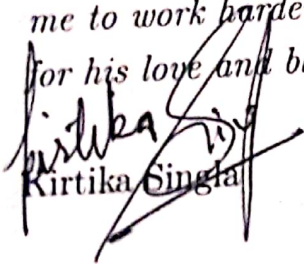 me to work harde
for his love and b
Kirtika
Kirtika Singla